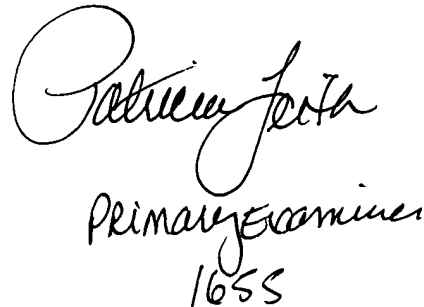 Patricia Leith
Primary Examiner
1655